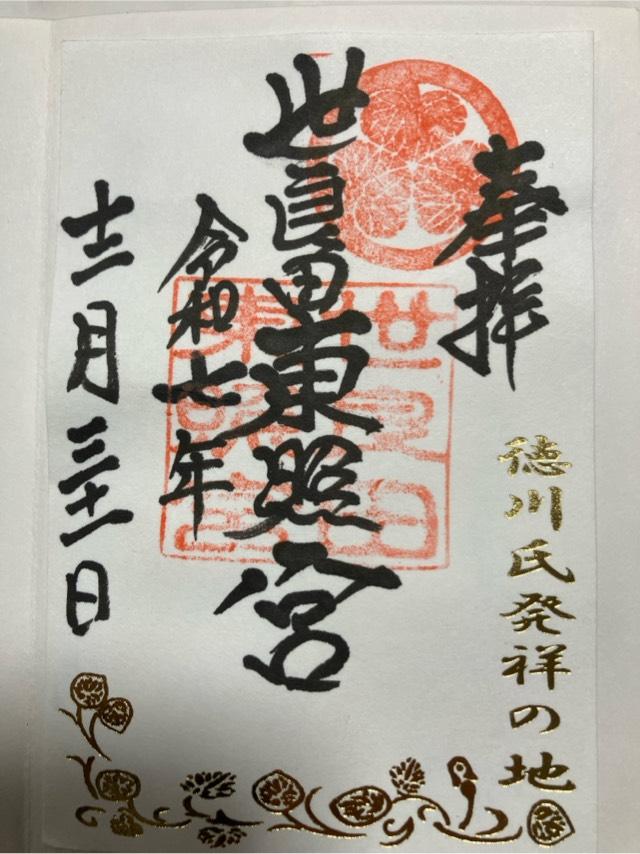 奉拝
徳川氏発祥の地
世良田東照宮
令和七年
十二月三十一日
世良田東照宮